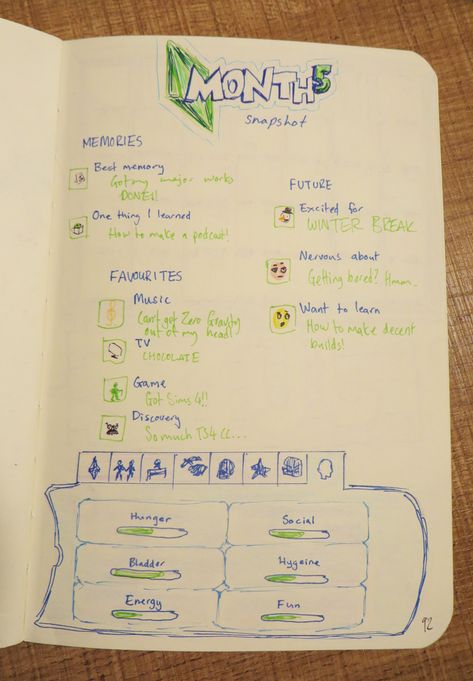 MONTH 5
snapshot
MEMORIES
Best memory
Got my major works
DONE!!
One thing I learned
How to make a podcast!
FUTURE
Excited for
WINTER BREAK
Nervous about
Getting bored? Hmm...
Want to learn
How to make decent
builds!
FAVOURITES
Music
Can't get Zero Gravity
out of my head!
TV
CHOCOLATE
Game
Got Sims 4!!
Discovery
So much TS4 CC...
Hunger
Social
Bladder
Hygeine
Energy
Fun
92